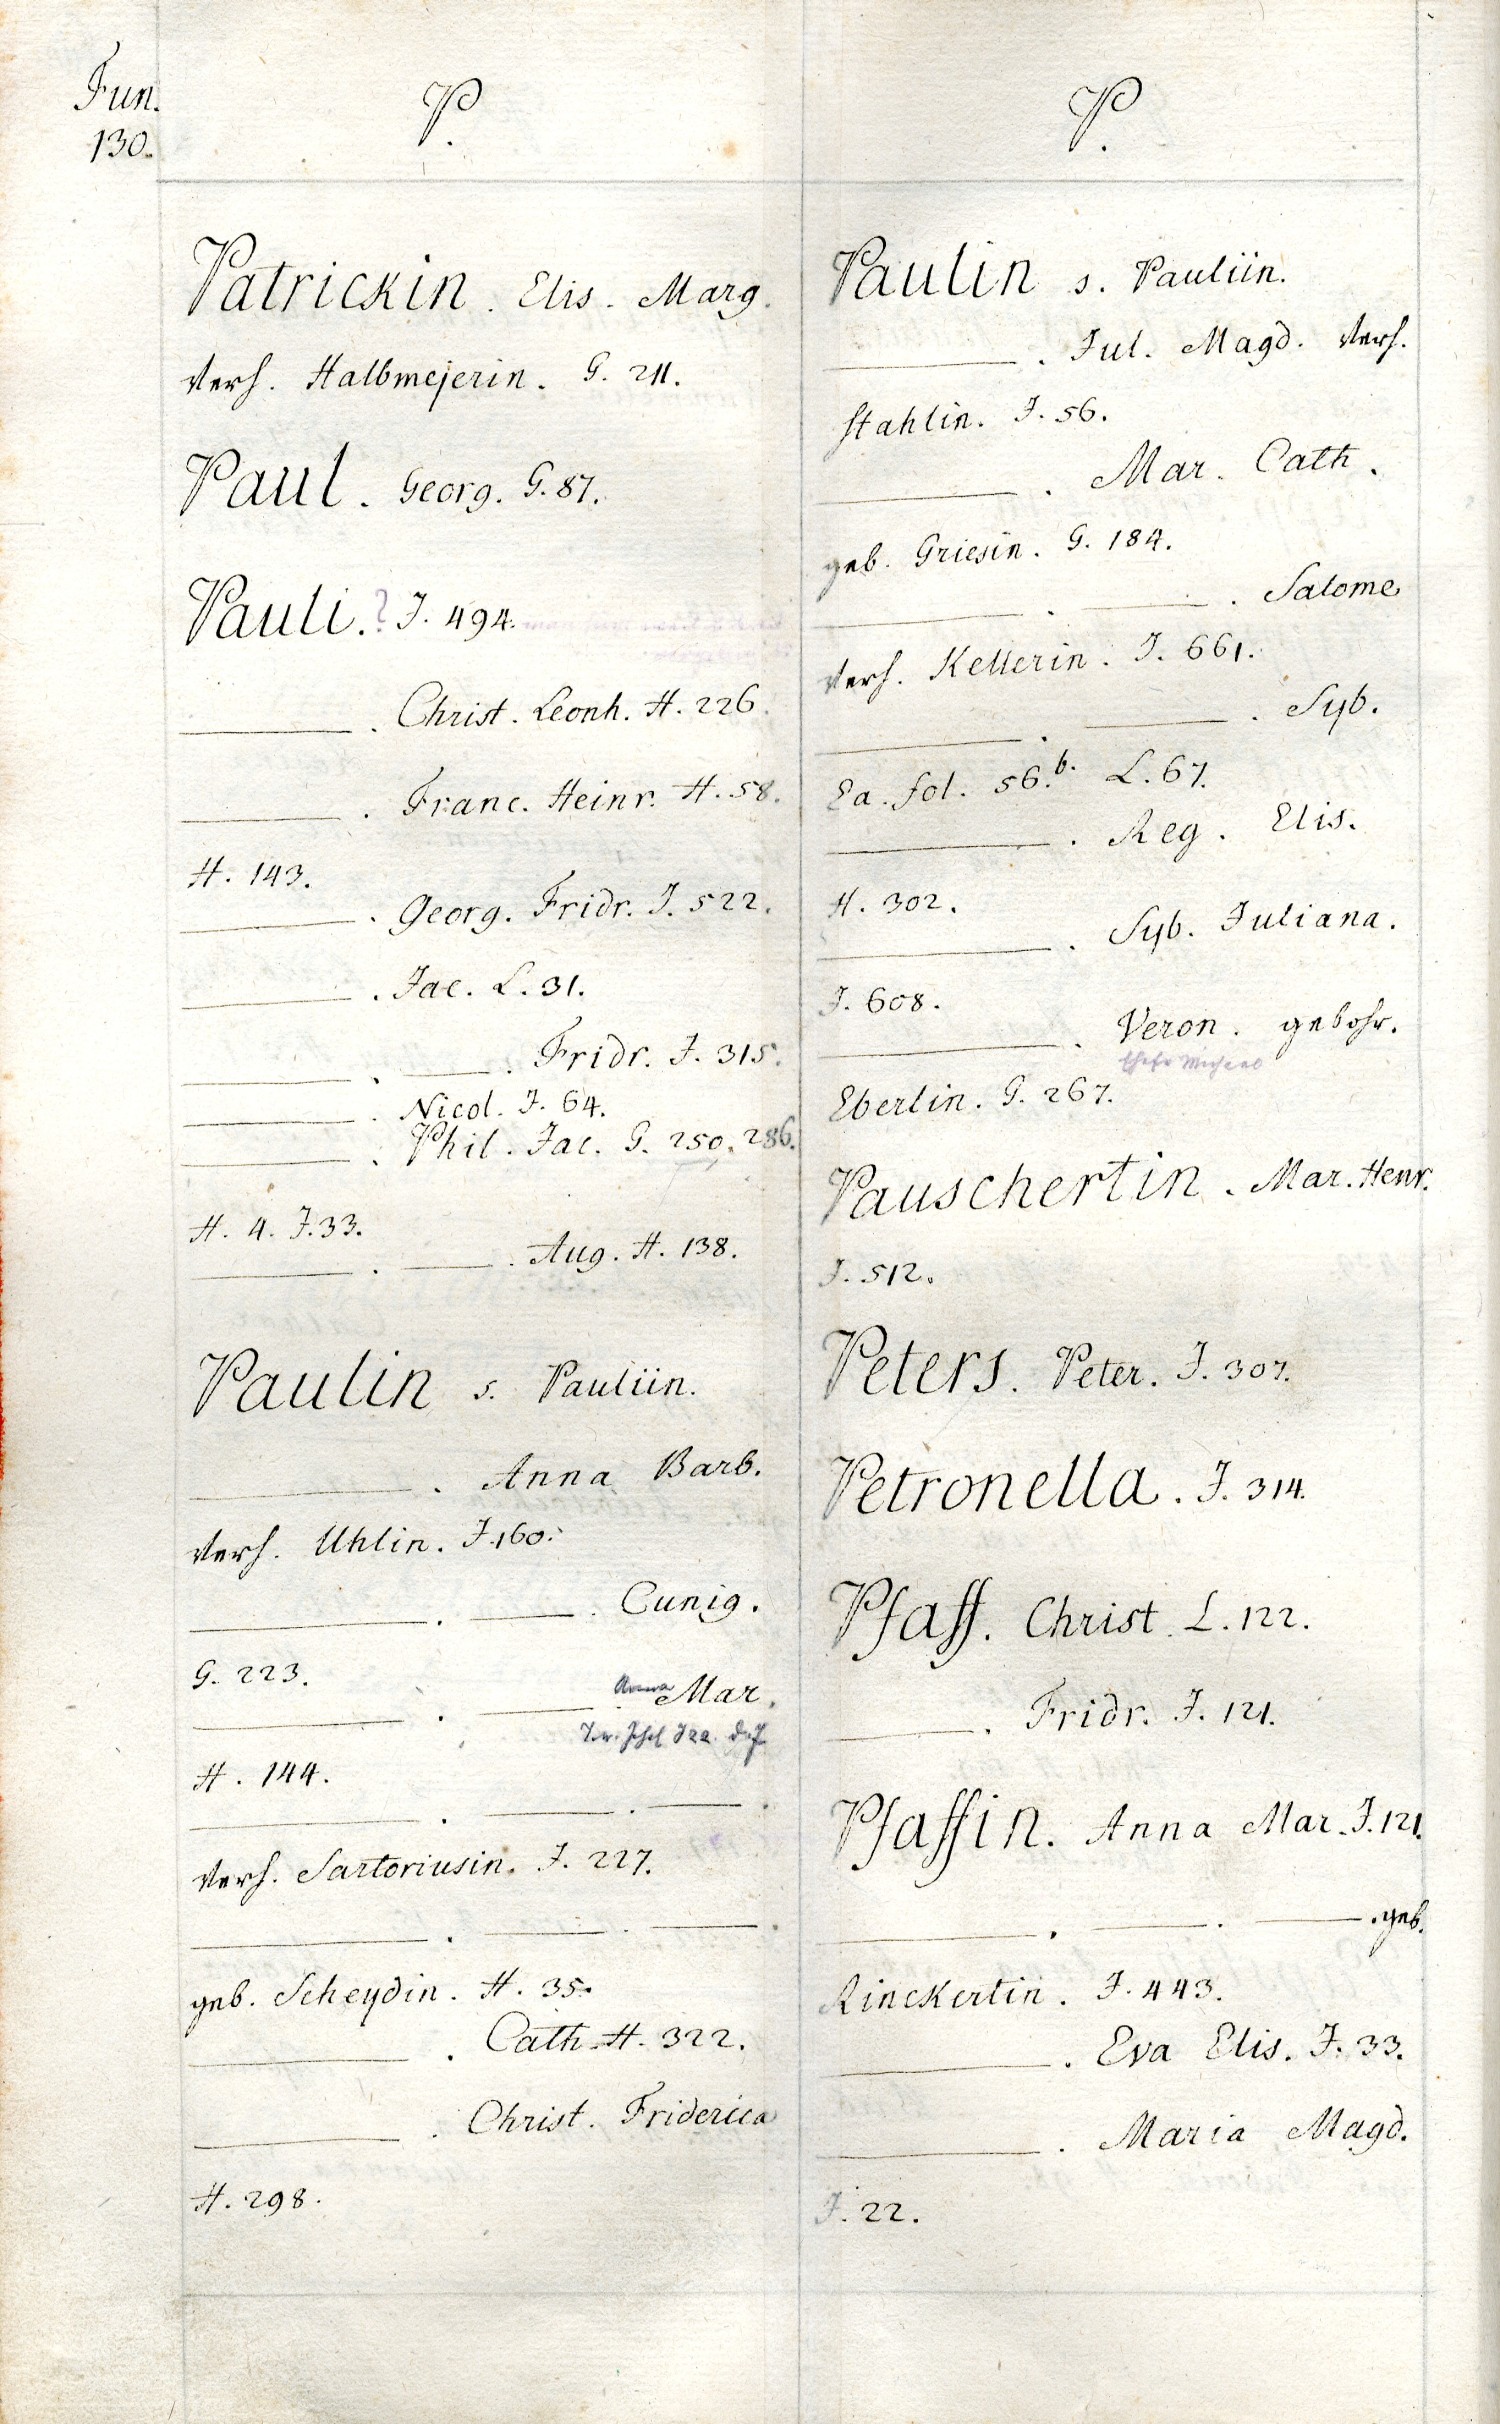 Fun.
130.
P.
Patrickin. Elis. Marg.
verh. Halbmejerin. G. 211.
Paul. Georg. G. 87.
Pauli.? J. 494.
———. Christ. Leonh. H. 226.
———. Franc. Heinr. H. 58.
H. 143.
———. Georg. Fridr. J. 522.
———. Jac. L. 31.
———. ———. Fridr. J. 315.
———. Nicol. J. 64.
———. Phil. Jac. G. 250. 286.
H. 4. J. 33.
———. ———. Aug. H. 138.
Paulin s. Pauliin.
———. Anna Barb.
verh. Uhlin. J. 160.
———. ———. Cunig.
G. 223.
———. ———. Anna Mar.
H. 144.
———. ———. ———.
verh. Sartoriusin. J. 227.
———. ———. ———.
geb. Scheydin. H. 35.
———. Cath. H. 322.
———. Christ. Friderica
H. 298.
P.
Paulin s. Pauliin.
———. Jul. Magd. verh.
Stahlin. J. 56.
———. Mar. Cath.
geb. Griesin. G. 184.
———. ———. Salome
verh. Kellerin. J. 661.
———. ———. Syb.
Ea. fol. 56.b. L. 67.
———. Reg. Elis.
H. 302.
———. Syb. Juliana.
J. 608.
———. Veron. gebohr.
Eberlin. G. 267.
Pauschertin. Mar. Henr.
J. 512.
Peters. Peter. J. 307.
Petronella. J. 314.
Pfaff. Christ. L. 122.
———. Fridr. J. 121.
Pfaffin. Anna Mar. J. 121.
———. ———. ———. geb.
Rinckertin. J. 443.
———. Eva Elis. J. 33.
———. Maria Magd.
J. 22.